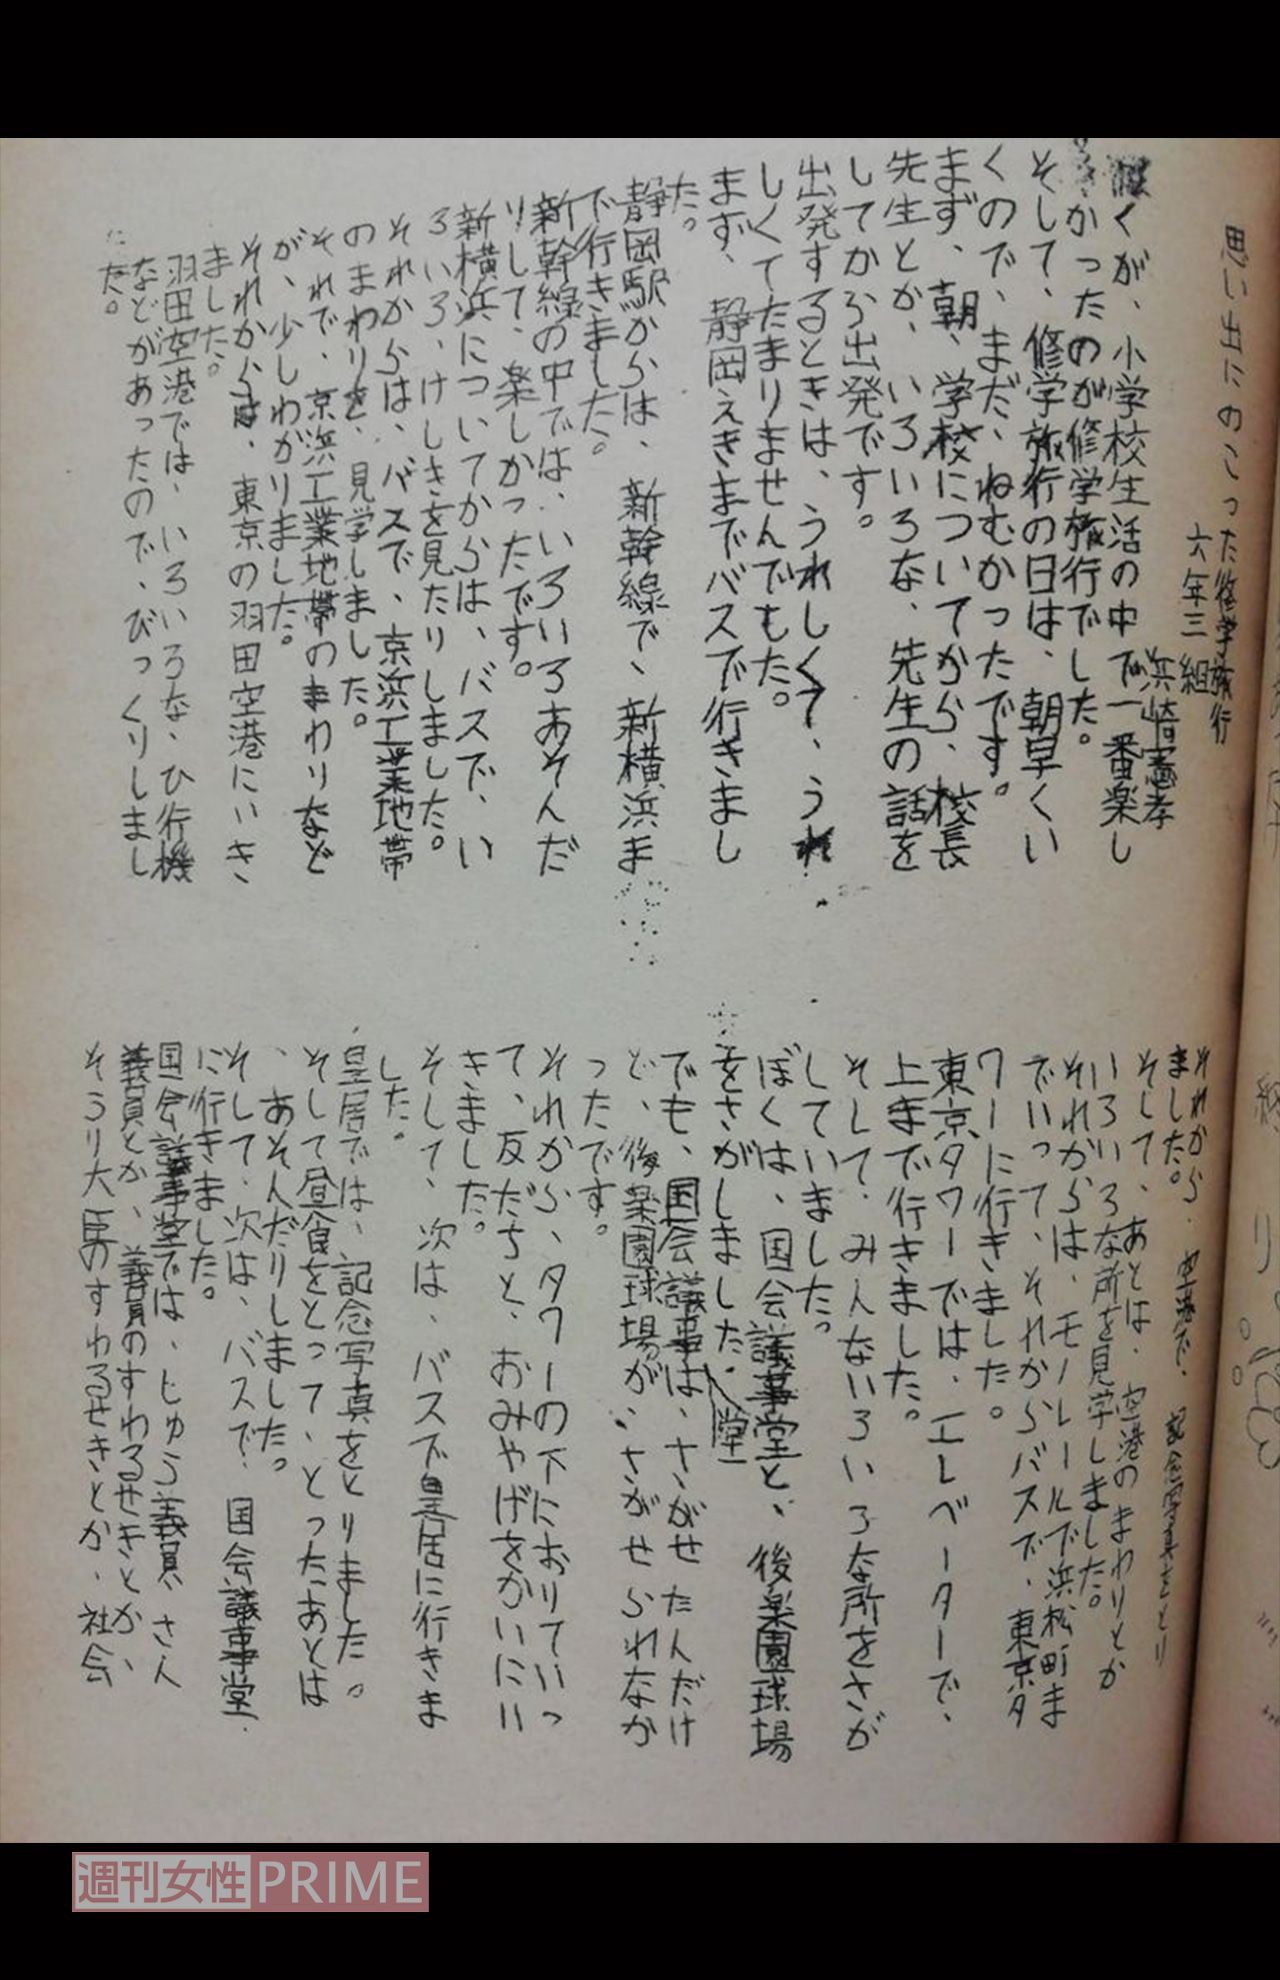 思い出にのこった修学旅行
六年三組
浜崎憲孝
ぼくが、小学校生活の中で一番楽し
かったのが修学旅行でした。
そして、修学旅行の日は、朝早くい
くので、まだ、ねむかったです。
まず、朝、学校についてから、校長
先生とか、いろいろな、先生の話を
してから出発です。
出発するときは、うれしくて、うれ
しくてたまりませんでした。
まず、静岡えきまでバスで行きまし
た。
静岡駅からは、新幹線で、新横浜ま
で行きました。
新幹線の中では、いろいろあそんだ
りして、楽しかったです。
新横浜についてからは、バスで、い
ろいろ、けしきを見たりしました。
それからは、バスで、京浜工業地帯
のまわりを、見学しました。
それで、京浜工業地帯のまわりなど
が、少しわかりました。
それからは、東京の羽田空港にいき
ました。
羽田空港では、いろいろな、ひ行機
などがあったので、びっくりしまし
た。
それから、空港で、記念写真をとり
ました。
そして、あとは、空港のまわりとか
いろいろな所を見学しました。
それからは、モノレールで浜松町ま
でいって、それからバスで、東京タ
ワーに行きました。
東京タワーでは、エレベーターで、
上まで行きました。
そして、みんないろいろな所をさが
していました。
ぼくは、国会議事堂と、後楽園球場
をさがしました。
でも、国会議事堂は、さがせたんだけ
ど、後楽園球場が、さがせられなか
ったです。
それから、タワーの下におりていっ
て、友だちと、おみやげをかいにい
きました。
そして、次は、バスで皇居に行きま
した。
皇居では、記念写真をとりました。
そして昼食をとって、とったあとは
、あそんだりしました。
そして、次は、バスで、国会議事堂
に行きました。
国会議事堂では、しゅう義員さん
義員とか、義員のすわるせきとか、
そうり大臣のすわるせきとか、社会
終
り
週刊女性PRIME